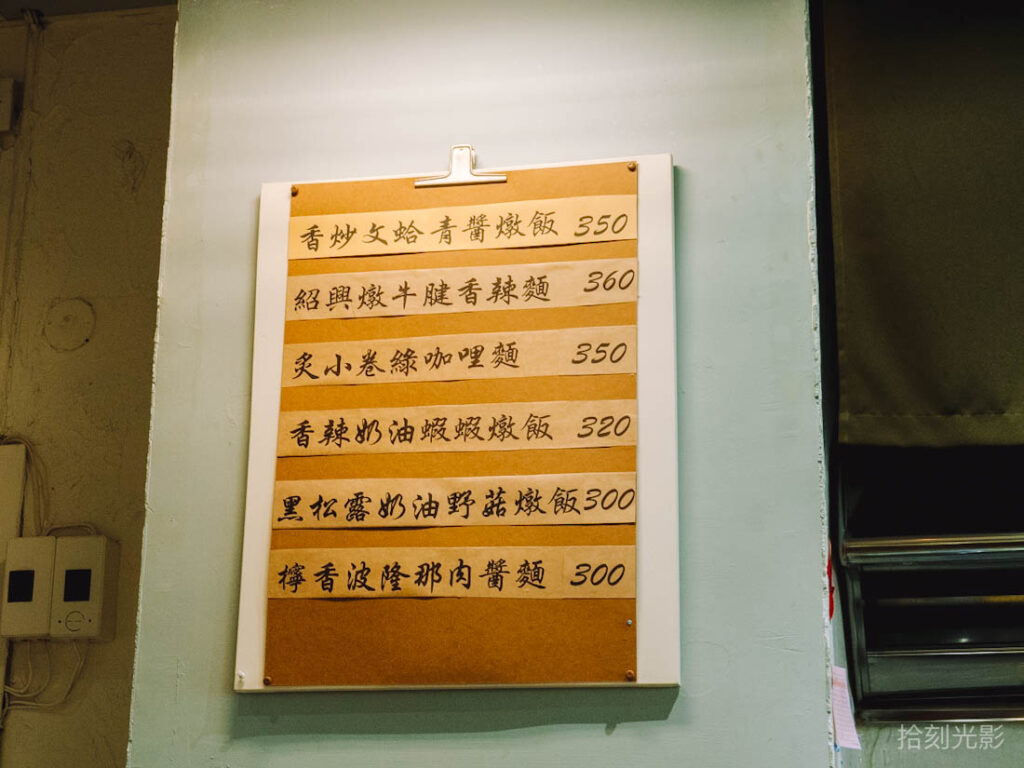 香炒文蛤青醬燉飯 350
紹興燉牛腱香辣麵 360
炙小卷綠咖哩麵 350
香辣奶油蝦蝦燉飯 320
黑松露奶油野菇燉飯300
檸香波隆那肉醬麵 300
拾刻光影